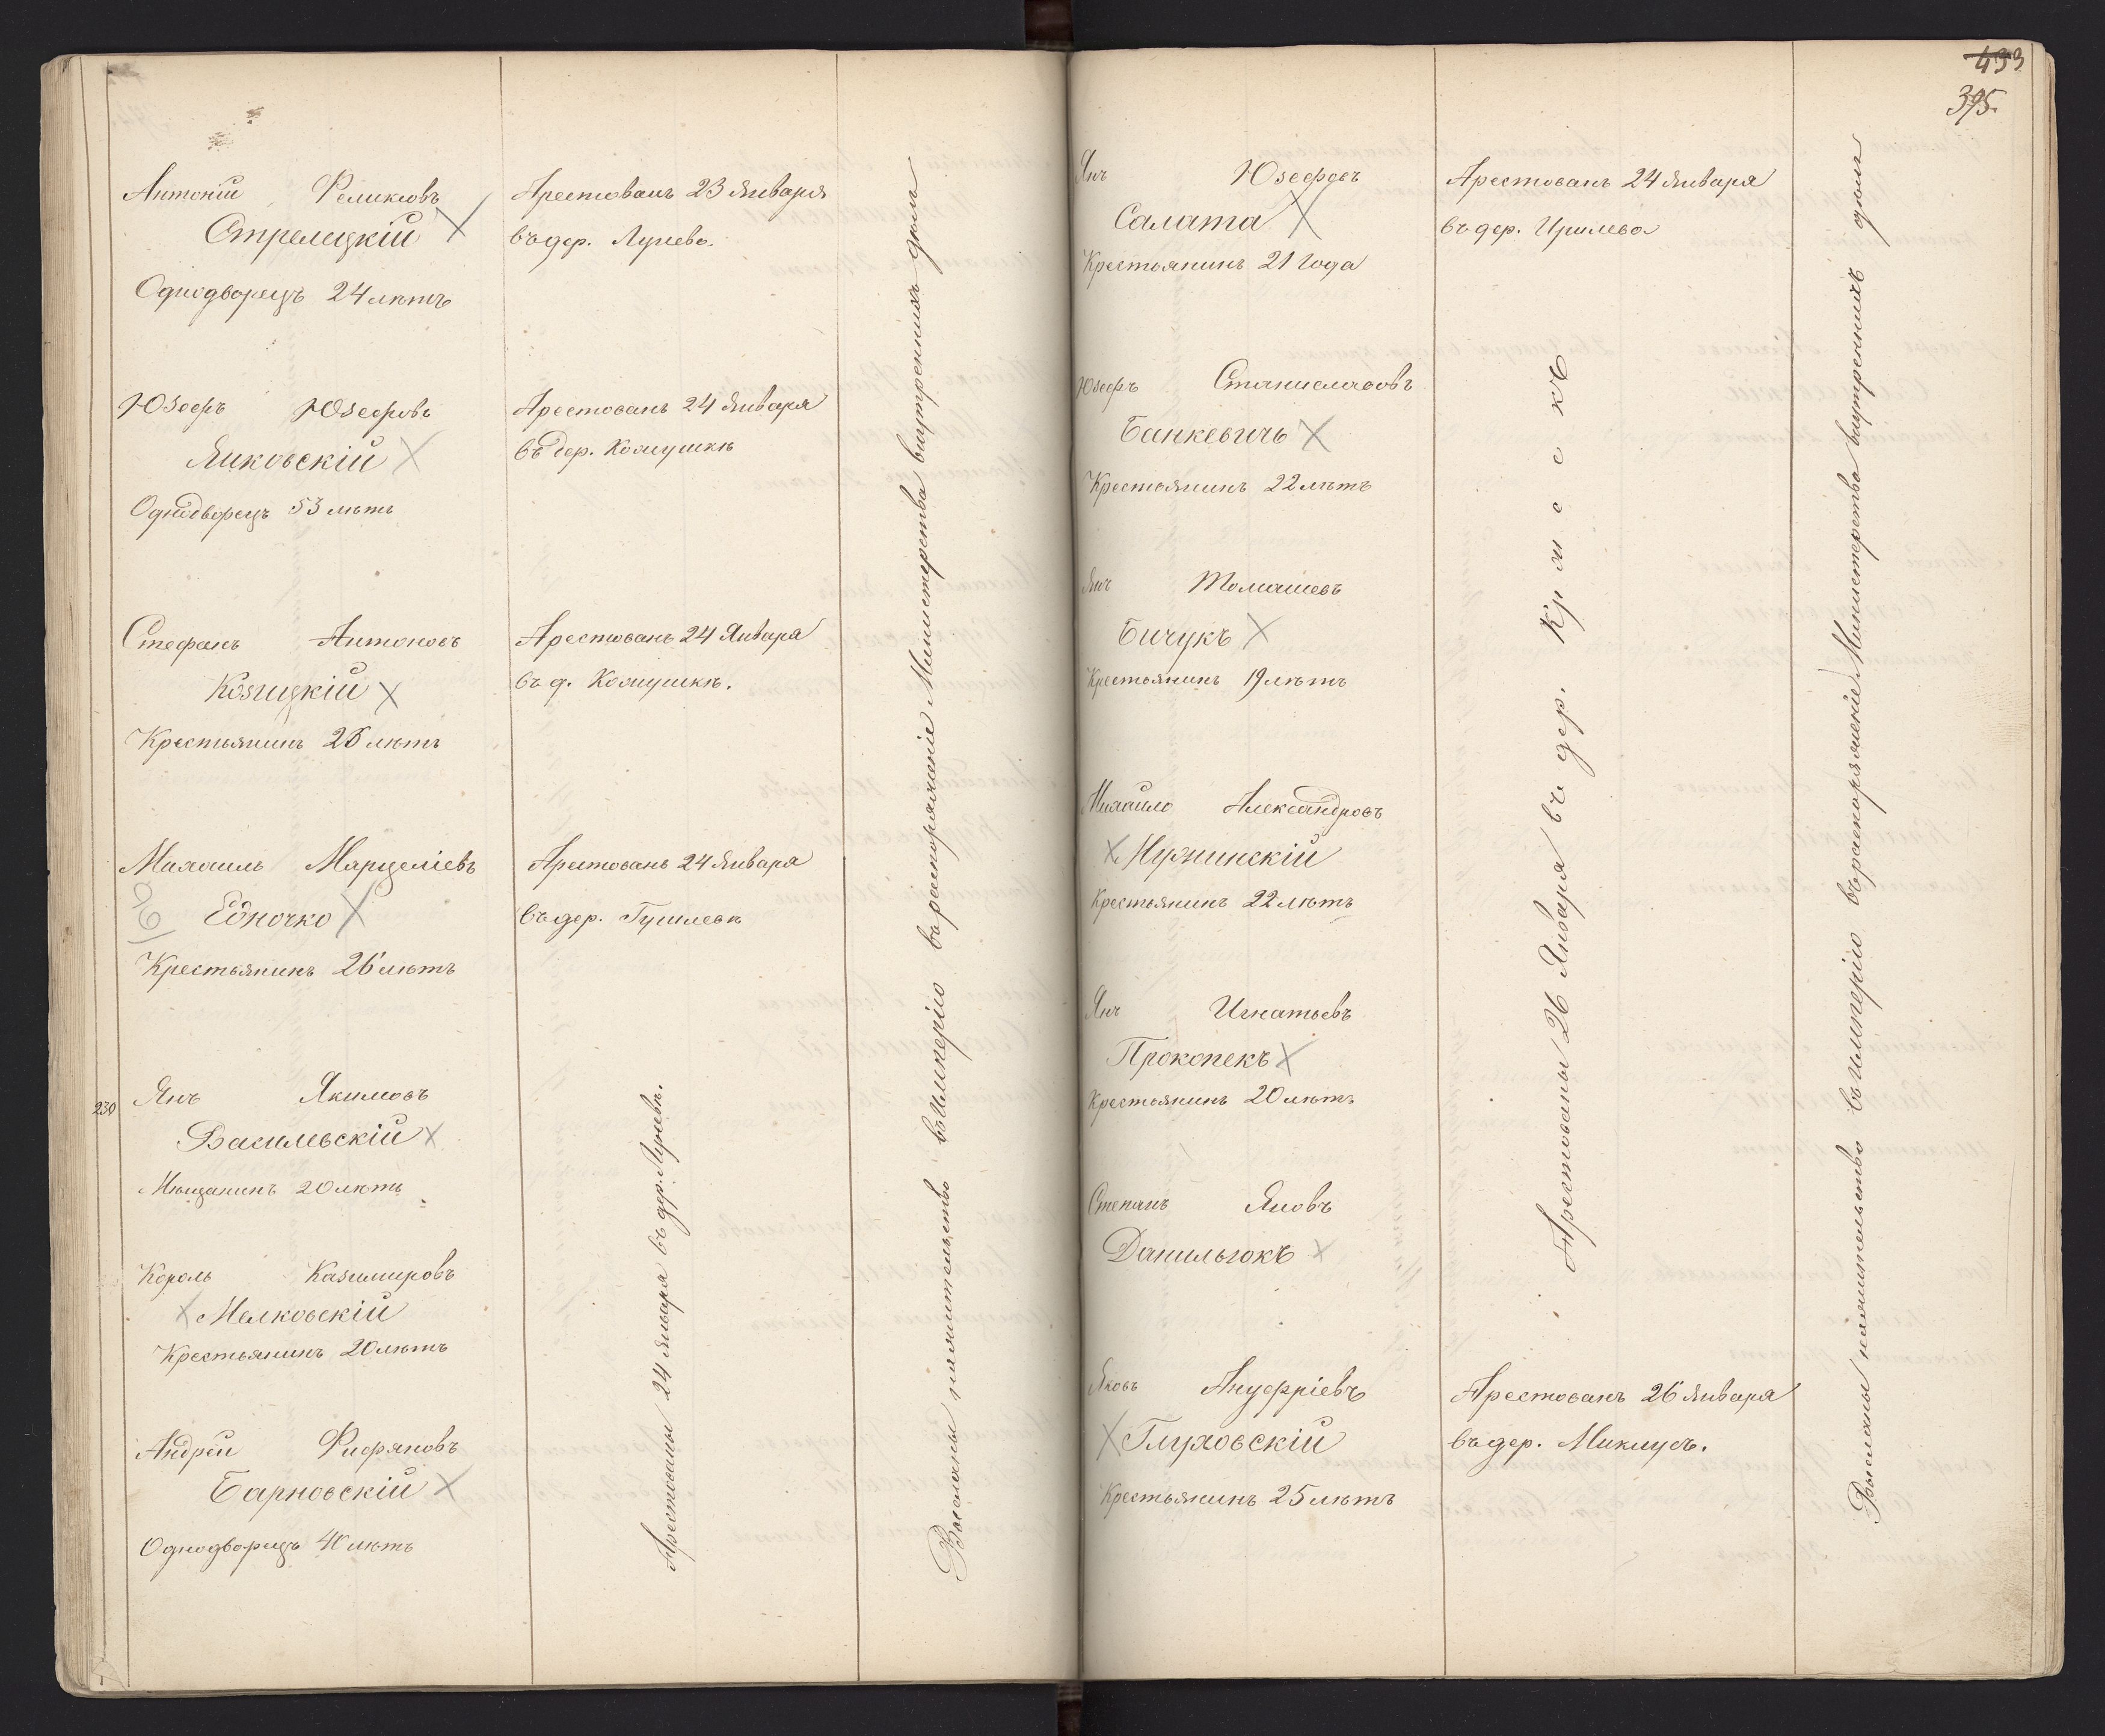 Антоній Феликсовъ
Стрелецкій
Однодворецъ 24 лѣтъ
Арестованъ 23 Января
въ дер. Лунево.
Юзефъ Юзефовъ
Янковскій
Однодворецъ 53 лѣтъ
Арестованъ 24 Января
въ дер.
Стефанъ Антоновъ
Козицкій
Крестьянинъ лѣтъ
Арестованъ 24 Января
въ д.
Михаилъ Марцеліевъ
Едночко
Крестьянинъ 26 лѣтъ
Арестованъ 24 Января
въ дер.
230
Янъ Якимовъ
Василевскій
Мѣщанинъ 20 лѣтъ
Кароль Казимировъ
Мелковскій
Крестьянинъ 20 лѣтъ
Андрей
Барновскій
Однодворецъ 40 лѣтъ
Арестованы 24 Января въ дер. Луневѣ.
Высланы на жительство въ Имперію въ распоряженіе Министерства внутреннихъ дѣлъ
433
395.
Янъ Юзефовъ
Салата
Крестьянинъ 21 года
Арестованъ 24 Января
въ дер.
Юзефъ Станиславовъ
Банкевичъ
Крестьянинъ 22 лѣтъ
Янъ Томашевъ
Бичукъ
Крестьянинъ 19 лѣтъ
Михайло Александровъ
Нужинскій
Крестьянинъ 22 лѣтъ
Янъ Игнатьевъ
Прокопекъ
Крестьянинъ 20 лѣтъ
Степанъ Яновъ
Данильюкъ
Арестованы 26 Января въ дер.
Яковъ Ануфріевъ
Глуховскій
Крестьянинъ 25 лѣтъ
Арестованъ 26 Января
въ дер.
Высланы на жительство въ Имперію въ распоряженіе Министерства внутреннихъ дѣлъ